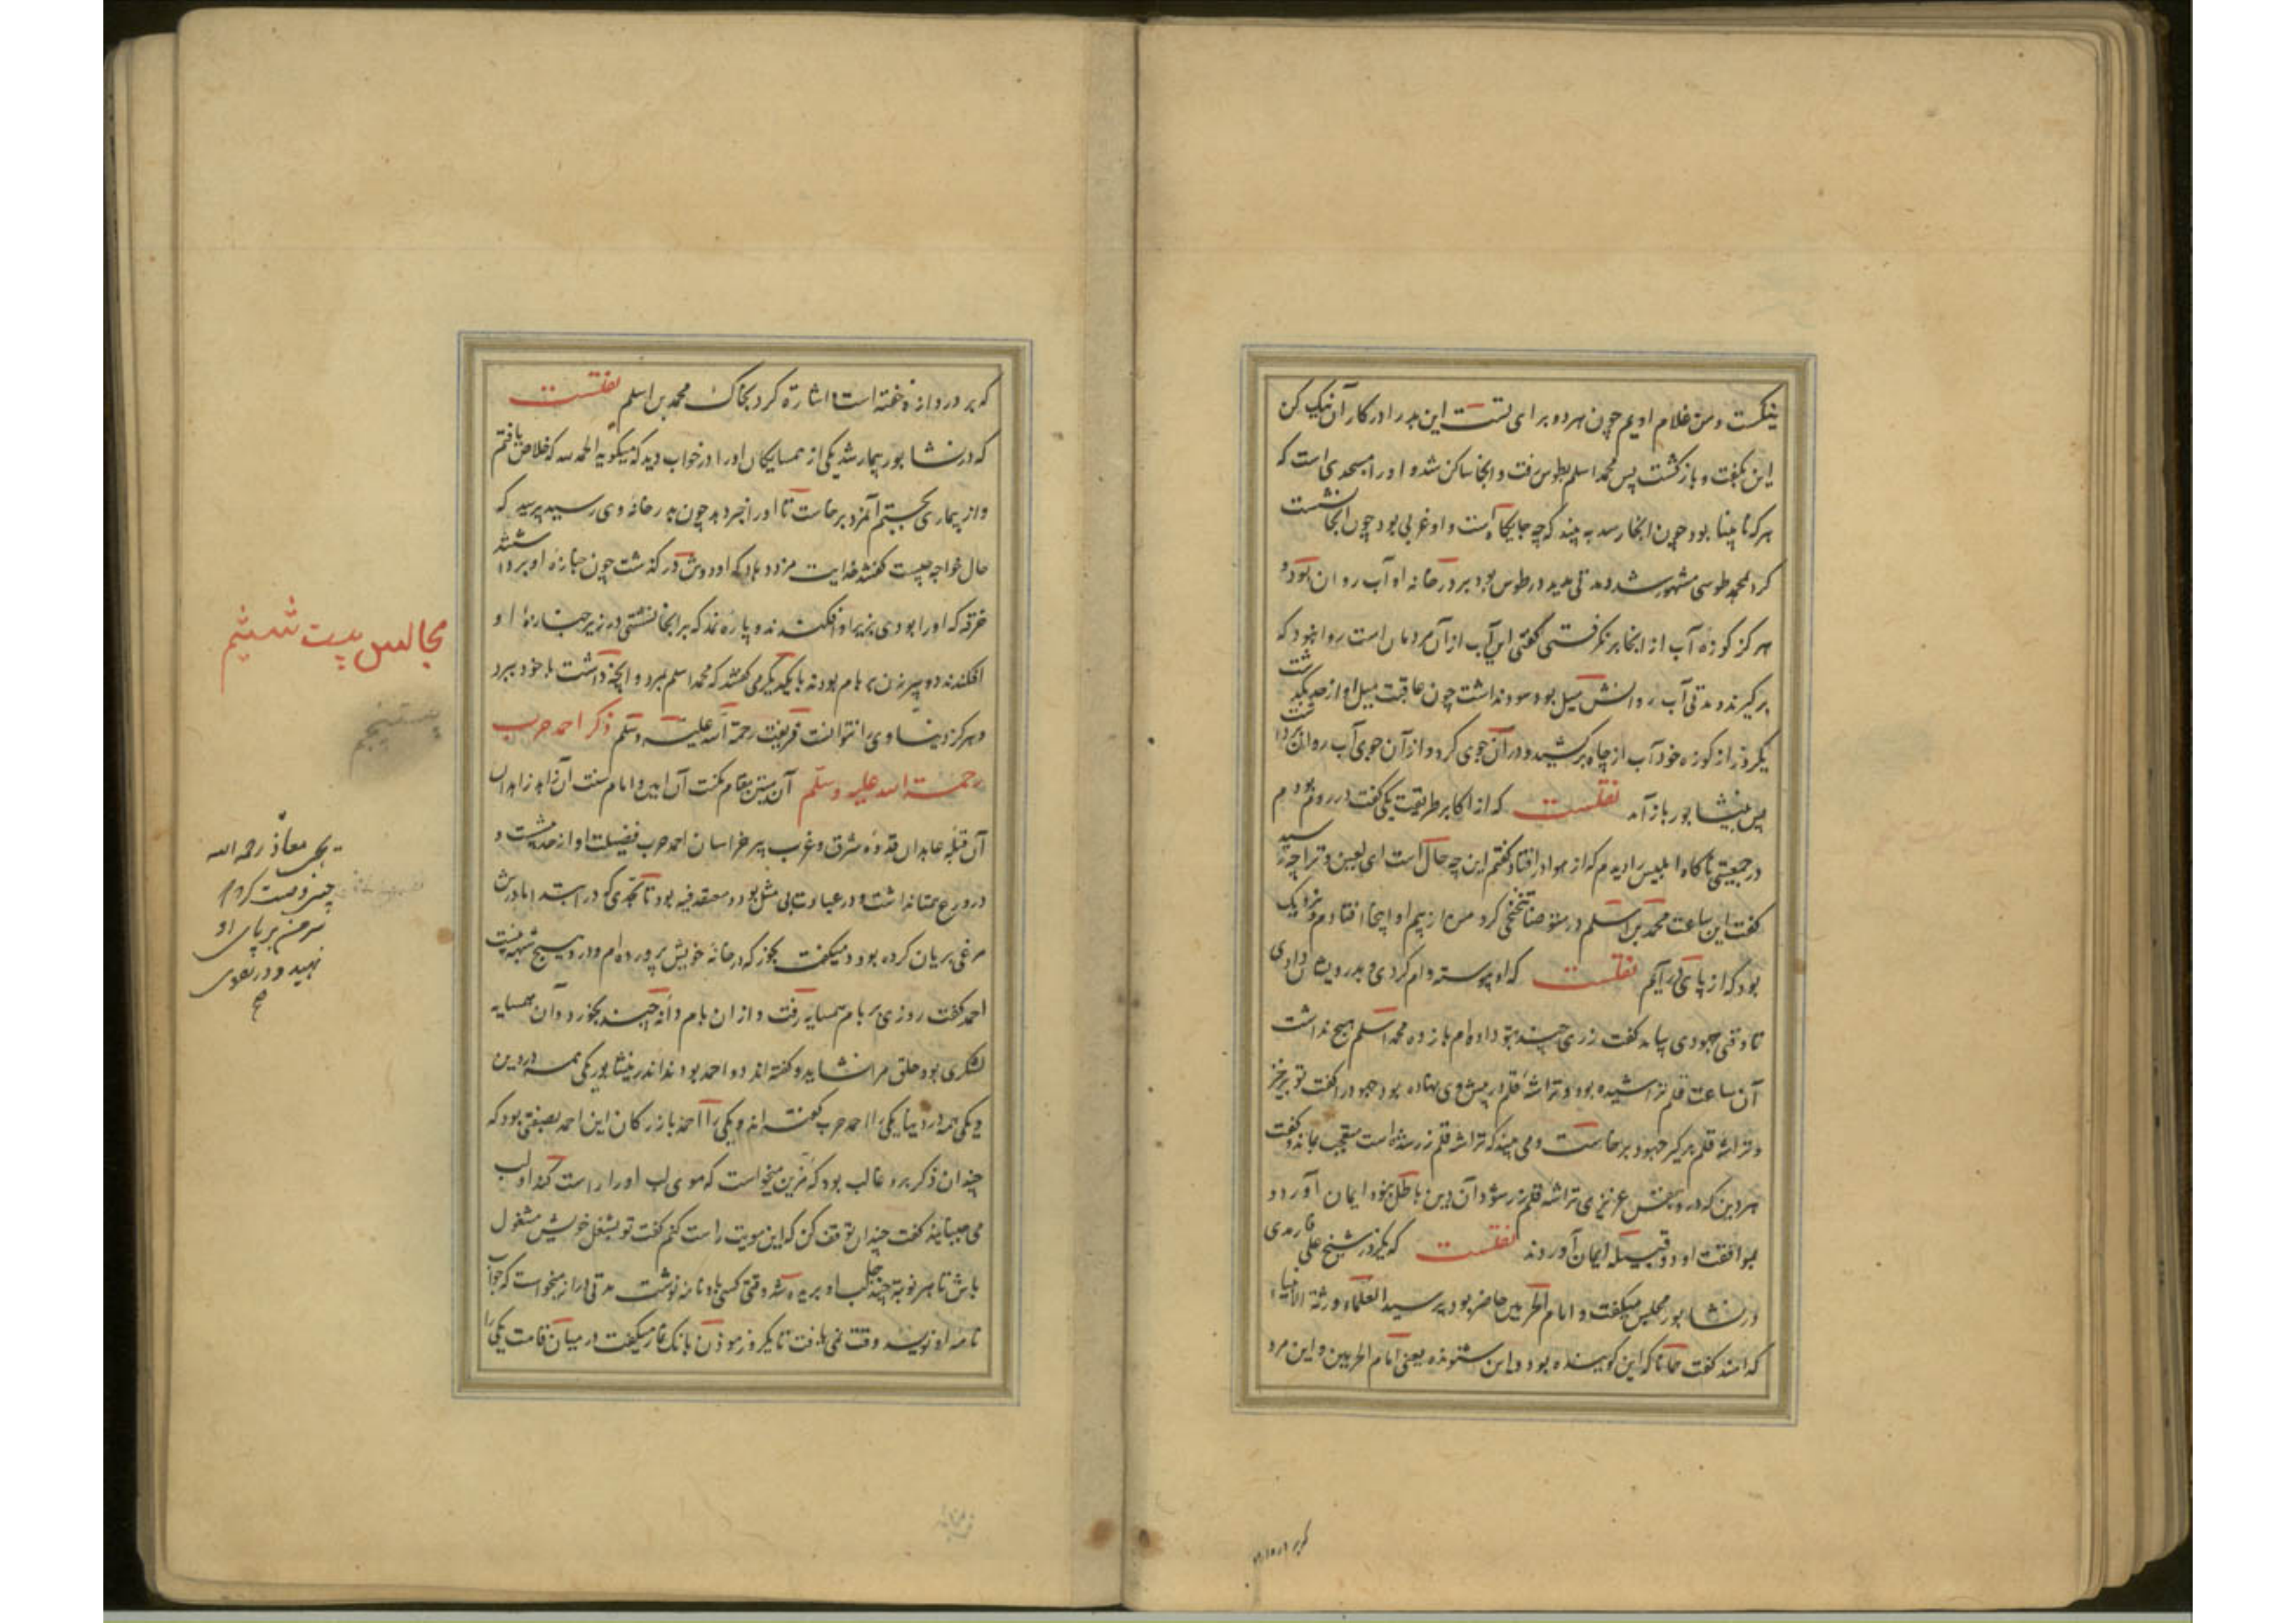 نیکست و من غلام اویم چون هر دو برای تست این بد را در کار آن نیک کن
این بگفت و بازگشت پس محمد اسلم بطوس رفت و آنجا ساکن شد و او را مسجدی است که
هر که نابینا بود چون آنجا رسد به بیند که چه جایگاهست و او عربی بود چون آنجا نشست
کرد بمحمد طوسی مشهور شد و مدتی مدید در طوس بود بر در خانه او آب روان بود و
هرگز کوزه آب از آنجا بر نگرفتی گفتی این آب از آن مردمان است روا نبود که
برگیرند و مدتی آب روانش میل بود سود نداشت چون عاقبت میل او از حد بگذشت
یکروز از کوزه خود آب از چاه برکشید و در آن جوی کرد و از آن جوی آب روان
پس بنیشابور باز آمد نقلست که از اکابر طریقت یکی گفت در روم بودم
در جمعیتی ناگاه ابلیس را دیدم که از هوا در افتاد گفتم این چه حال است ای لعین و ترا چه رسید
گفت این ساعت محمد بن اسلم در متوضا تنحنحی کرد من از بیم او اینجا افتادم و نزدیک
بود که از پای در آیم نقلست که او پیوسته وام کردی و بدرویشان دادی
تا وقتی جهودی بیامد گفت زری چند بتو داده‌ام باز ده محمد اسلم هیچ نداشت
آن ساعت قلم تراشیده بود و تراشه قلم در پیش وی نهاده بود جهود را گفت تو برخیز
و تراشه قلم برگیر جهود برخاست و می بیند که تراشه قلم زر شده است متعجب بماند و گفت
هر دین که در وی بنفس عزیزی تراشه قلم زر شود آن دین باطل نبود ایمان آورد و
بموافقت او دو قبیله ایمان آوردند نقلست که یکروز شیخ علی فارمدی
در نشابور مجلس میگفت و امام الحرمین حاضر بود پرسید العلماء ورثة الانبیاء
که امند گفت همانا که این گوینده بود و این شنونده یعنی امام الحرمین و این مرد
که بر دروازه خفته است اشارة کرد بخاک محمد بن اسلم نقلست
که در نشابور بیمار شد یکی از همسایگان او را در خواب دید که میگوید الحمد لله که خلاص یافتم
و از بیماری بجستم آنمرد برخاست تا او را خبر دهد چون بدر خانه وی رسید پرسید که
حال خواجه چیست گفتند خدایت مزد دهاد که او دوش در گذشت چون جنازه او برداشتند
خرقه که او را بودی بزیر او افکندند و پاره نمد که بر آنجا نشستی در زیر جنازه او
افکندند دو پیرزن بر بام بودند با یکدیگر می گفتند که محمد اسلم بمرد و آنچه داشت با خود ببرد
و هرگز دنیا وی را نتوانست فریفت رحمة الله علیه وسلم ذکر احمد حرب
رحمة الله علیه وسلم آن متین مقام مکنت آن امین و امام سنت آن زاهد زاهدان
آن قبله عابدان قدوه شرق و غرب پیر خراسان احمد حرب فضیلت او از حد بیشست و
در ورع همتا نداشت و در عبادت بی مثل بود و معتقد فیه بود تا بحدی که در ابتدا مادرش
مرغی بریان کرده بود و میگفت بخور که در خانه خویش پرورده‌ام و در وی هیچ شبهه نیست
احمد گفت روزی بر بام همسایه رفت و از ان بام دانه چند بخورد و آن همسایه
لشکری بود حلق مرا نشاید و گفته اند دو احمد بودند اندر نیشابور یکی همه در دین
و یکی همه در دنیا یکی را احمد حرب گفته اند و یکی را احمد بازرگان این احمد بصفتی بود که
چندان ذکر برو غالب بود که مزین میخواست که موی لب او را راست کند او لب
می جنبانید گفت چندان توقف کن که این مویت راست کنم گفت تو بشغل خویش مشغول
باش تا هر نوبة چند جا لب او بریده شد وقتی کسی بدو نامه نوشت مدتی دراز میخواست که جواب
نامه او نویسد وقت نمی یافت تا یکروز موذن بانک نماز میگفت در میان قامت یکی را
مجالس بیست ششم
بیست پنجم
یحیی معاذ رحمه الله
چنین وصیت کرد که
سر من بر پای او
نهید و در تقوی
صح